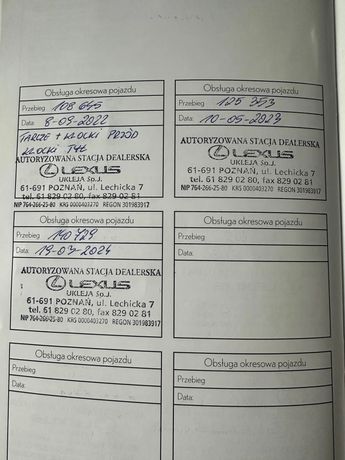 Obsługa okresowa pojazdu
Przebieg 108 645
Data: 8-09-2022
TARCZE + KLOCKI PRZÓD
KLOCKI TYŁ
AUTORYZOWANA STACJA DEALERSKA
LEXUS
UKLEJA Sp.J.
61-691 POZNAŃ, ul. Lechicka 7
tel. 61 829 02 80, fax 829 02 81
NIP 764-266-25-80 KRS 0000403270 REGON 301983917
Obsługa okresowa pojazdu
Przebieg 125 353
Data: 10-05-2023
AUTORYZOWANA STACJA DEALERSKA
LEXUS
UKLEJA Sp.J.
61-691 POZNAŃ, ul. Lechicka 7
tel. 61 829 02 80, fax 829 02 81
NIP 764-266-25-80 KRS 0000403270 REGON 301983917
Obsługa okresowa pojazdu
Przebieg 140 729
Data: 19-03-2024
AUTORYZOWANA STACJA DEALERSKA
LEXUS
UKLEJA Sp.J.
61-691 POZNAŃ, ul. Lechicka 7
tel. 61 829 02 80, fax 829 02 81
NIP 764-266-25-80 KRS 0000403270 REGON 301983917
Obsługa okresowa pojazdu
Przebieg:
Data:
Obsługa okresowa pojazdu
Przebieg:
Data:
Obsługa okresowa pojazdu
Przebieg:
Data: